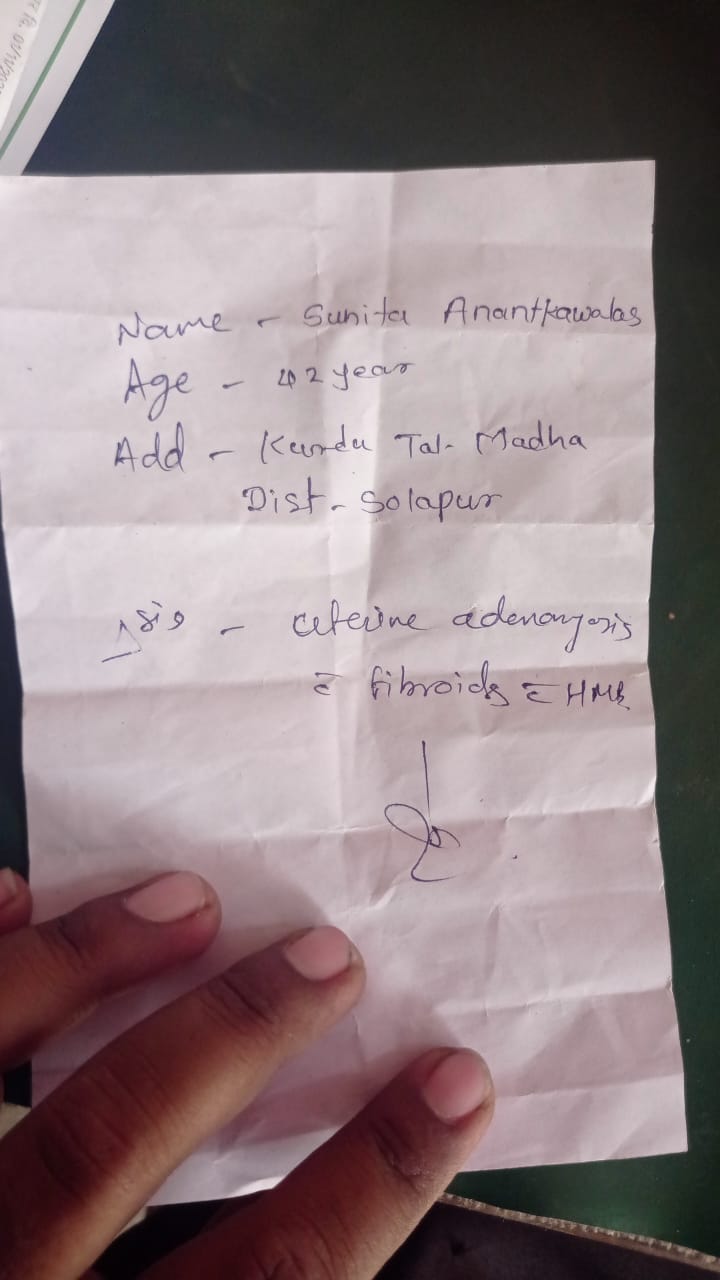 01/11/202
Name - Sunita Anantkawalas
Age - 42 year
Add - Kurdu Tal- Madha
Dist - Solapur
Δsis - uterine adenomyosis
c̄ fibroids c̄ HMB